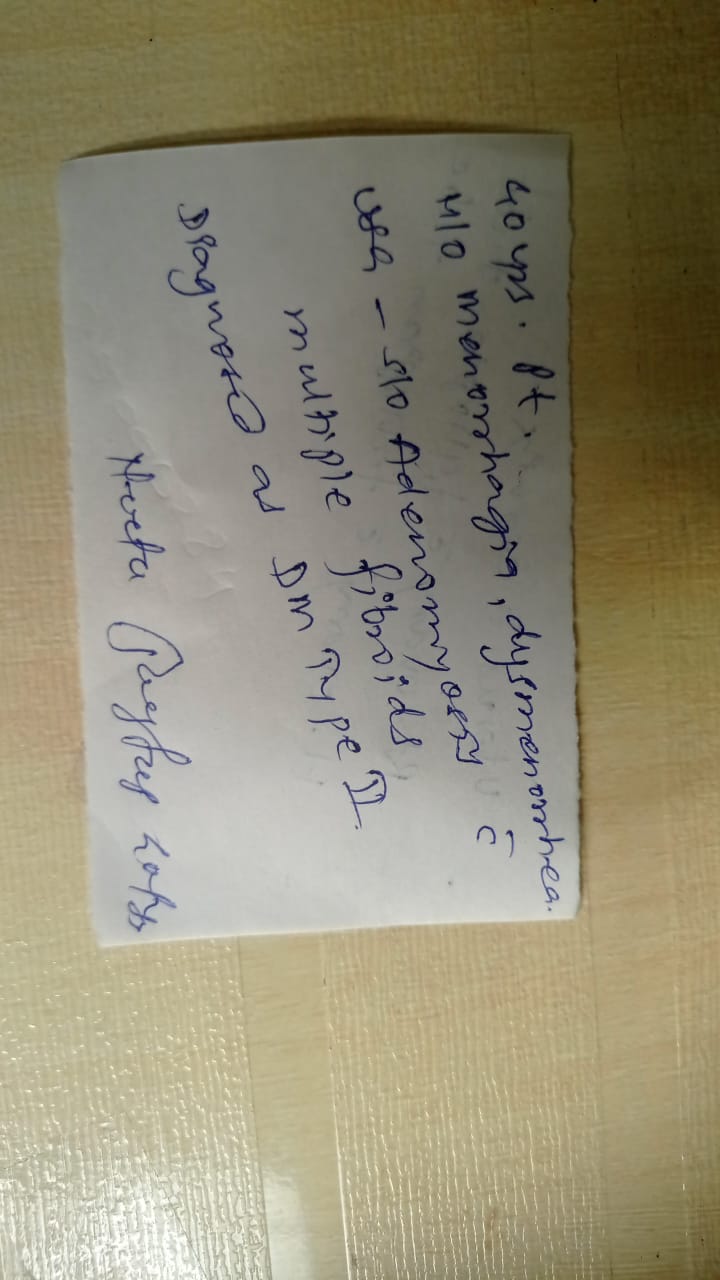 40 yrs. Pt.
H/O menorrhagia, dysmenorrhea.
USG - S/O Adenomyosis c̄
multiple fibroids
Diagnosed as DM Type II
40yr